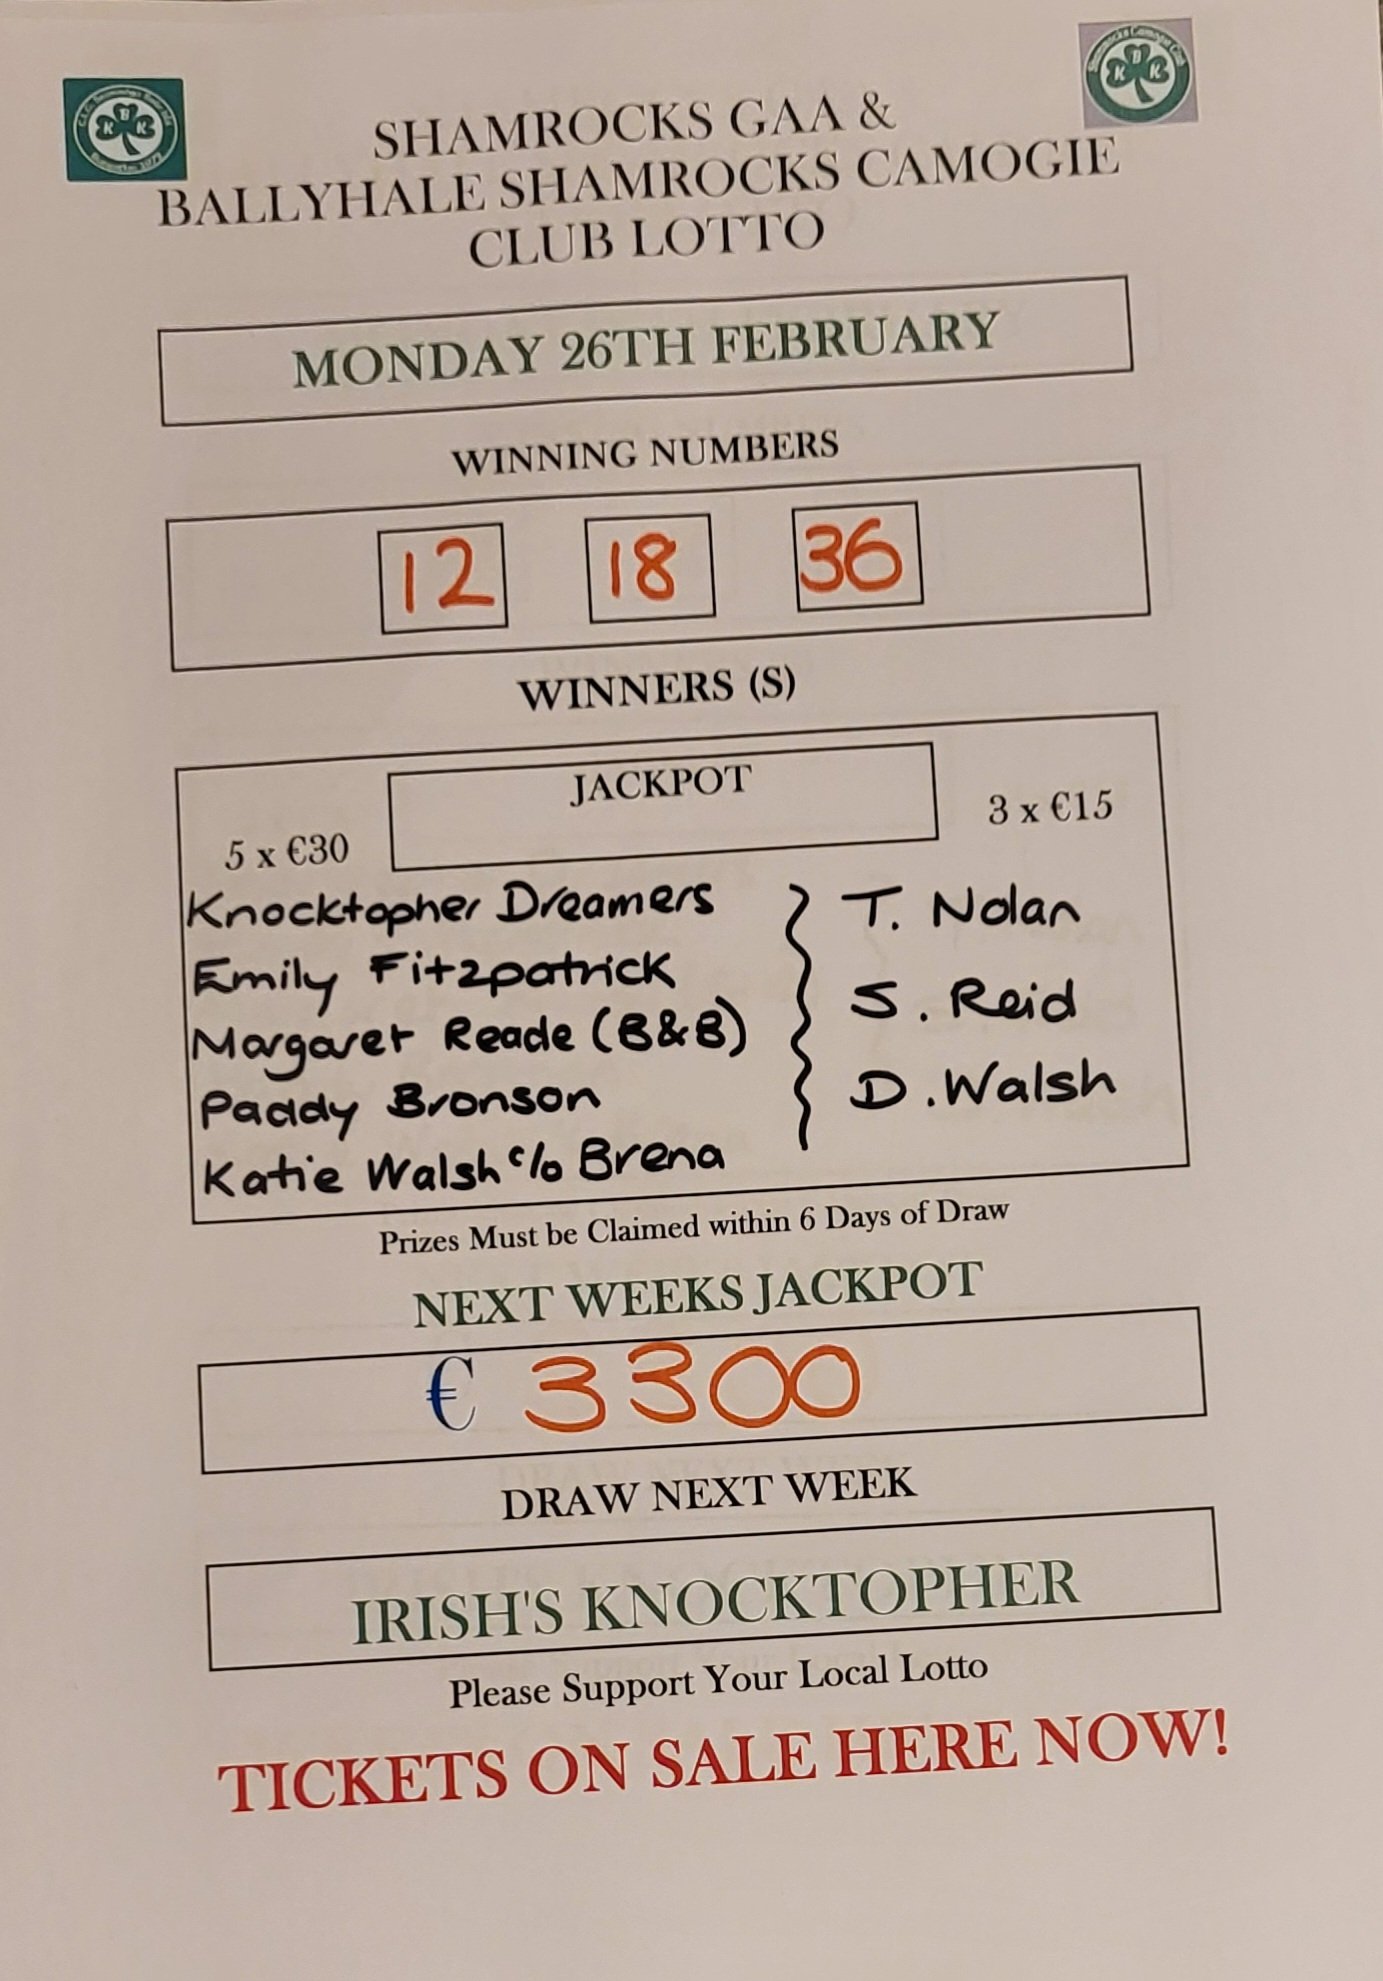 SHAMROCKS GAA &
BALLYHALE SHAMROCKS CAMOGIE
CLUB LOTTO
MONDAY 26TH FEBRUARY
WINNING NUMBERS
12 18 36
WINNERS (S)
JACKPOT
5 x €30
3 x €15
Knocktopher Dreamers
Emily Fitzpatrick
Margaret Reade (B&B)
Paddy Bronson
Katie Walsh c/o Brena
T. Nolan
S. Reid
D. Walsh
Prizes Must be Claimed within 6 Days of Draw
NEXT WEEKS JACKPOT
€ 3300
DRAW NEXT WEEK
IRISH'S KNOCKTOPHER
Please Support Your Local Lotto
TICKETS ON SALE HERE NOW!